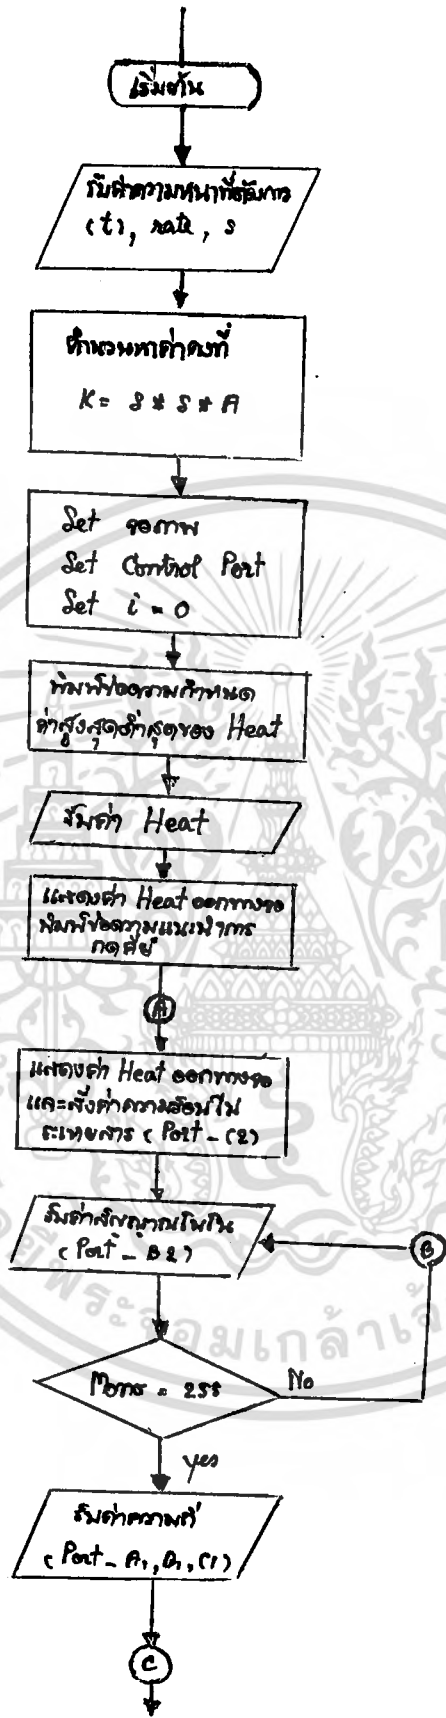 เริ่มต้น
รับค่าความหนาที่ต้องการ
(t), rate, s
คำนวณหาค่าคงที่
K = S * S * A
Set จอภาพ
Set Control Port
Set i = 0
พิมพ์ข้อความกำหนด
ค่าสูงสุดต่ำสุดของ Heat
รับค่า Heat
แสดงค่า Heat ออกทางจอ
พิมพ์ข้อความแนะนำการ
กดคีย์
A
แสดงค่า Heat ออกทางจอ
และส่งค่าความร้อนใน
ระเหยสาร (Port - C2)
รับค่าสัญญาณโมโน
(Port - B2)
B
Mono = 255
No
yes
รับค่าความถี่
(Port - A1, B1, C1)
C
พระจอมเกล้าเจ้